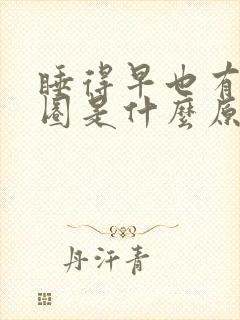 睡得早也有
圈是什麼原
丹汗青